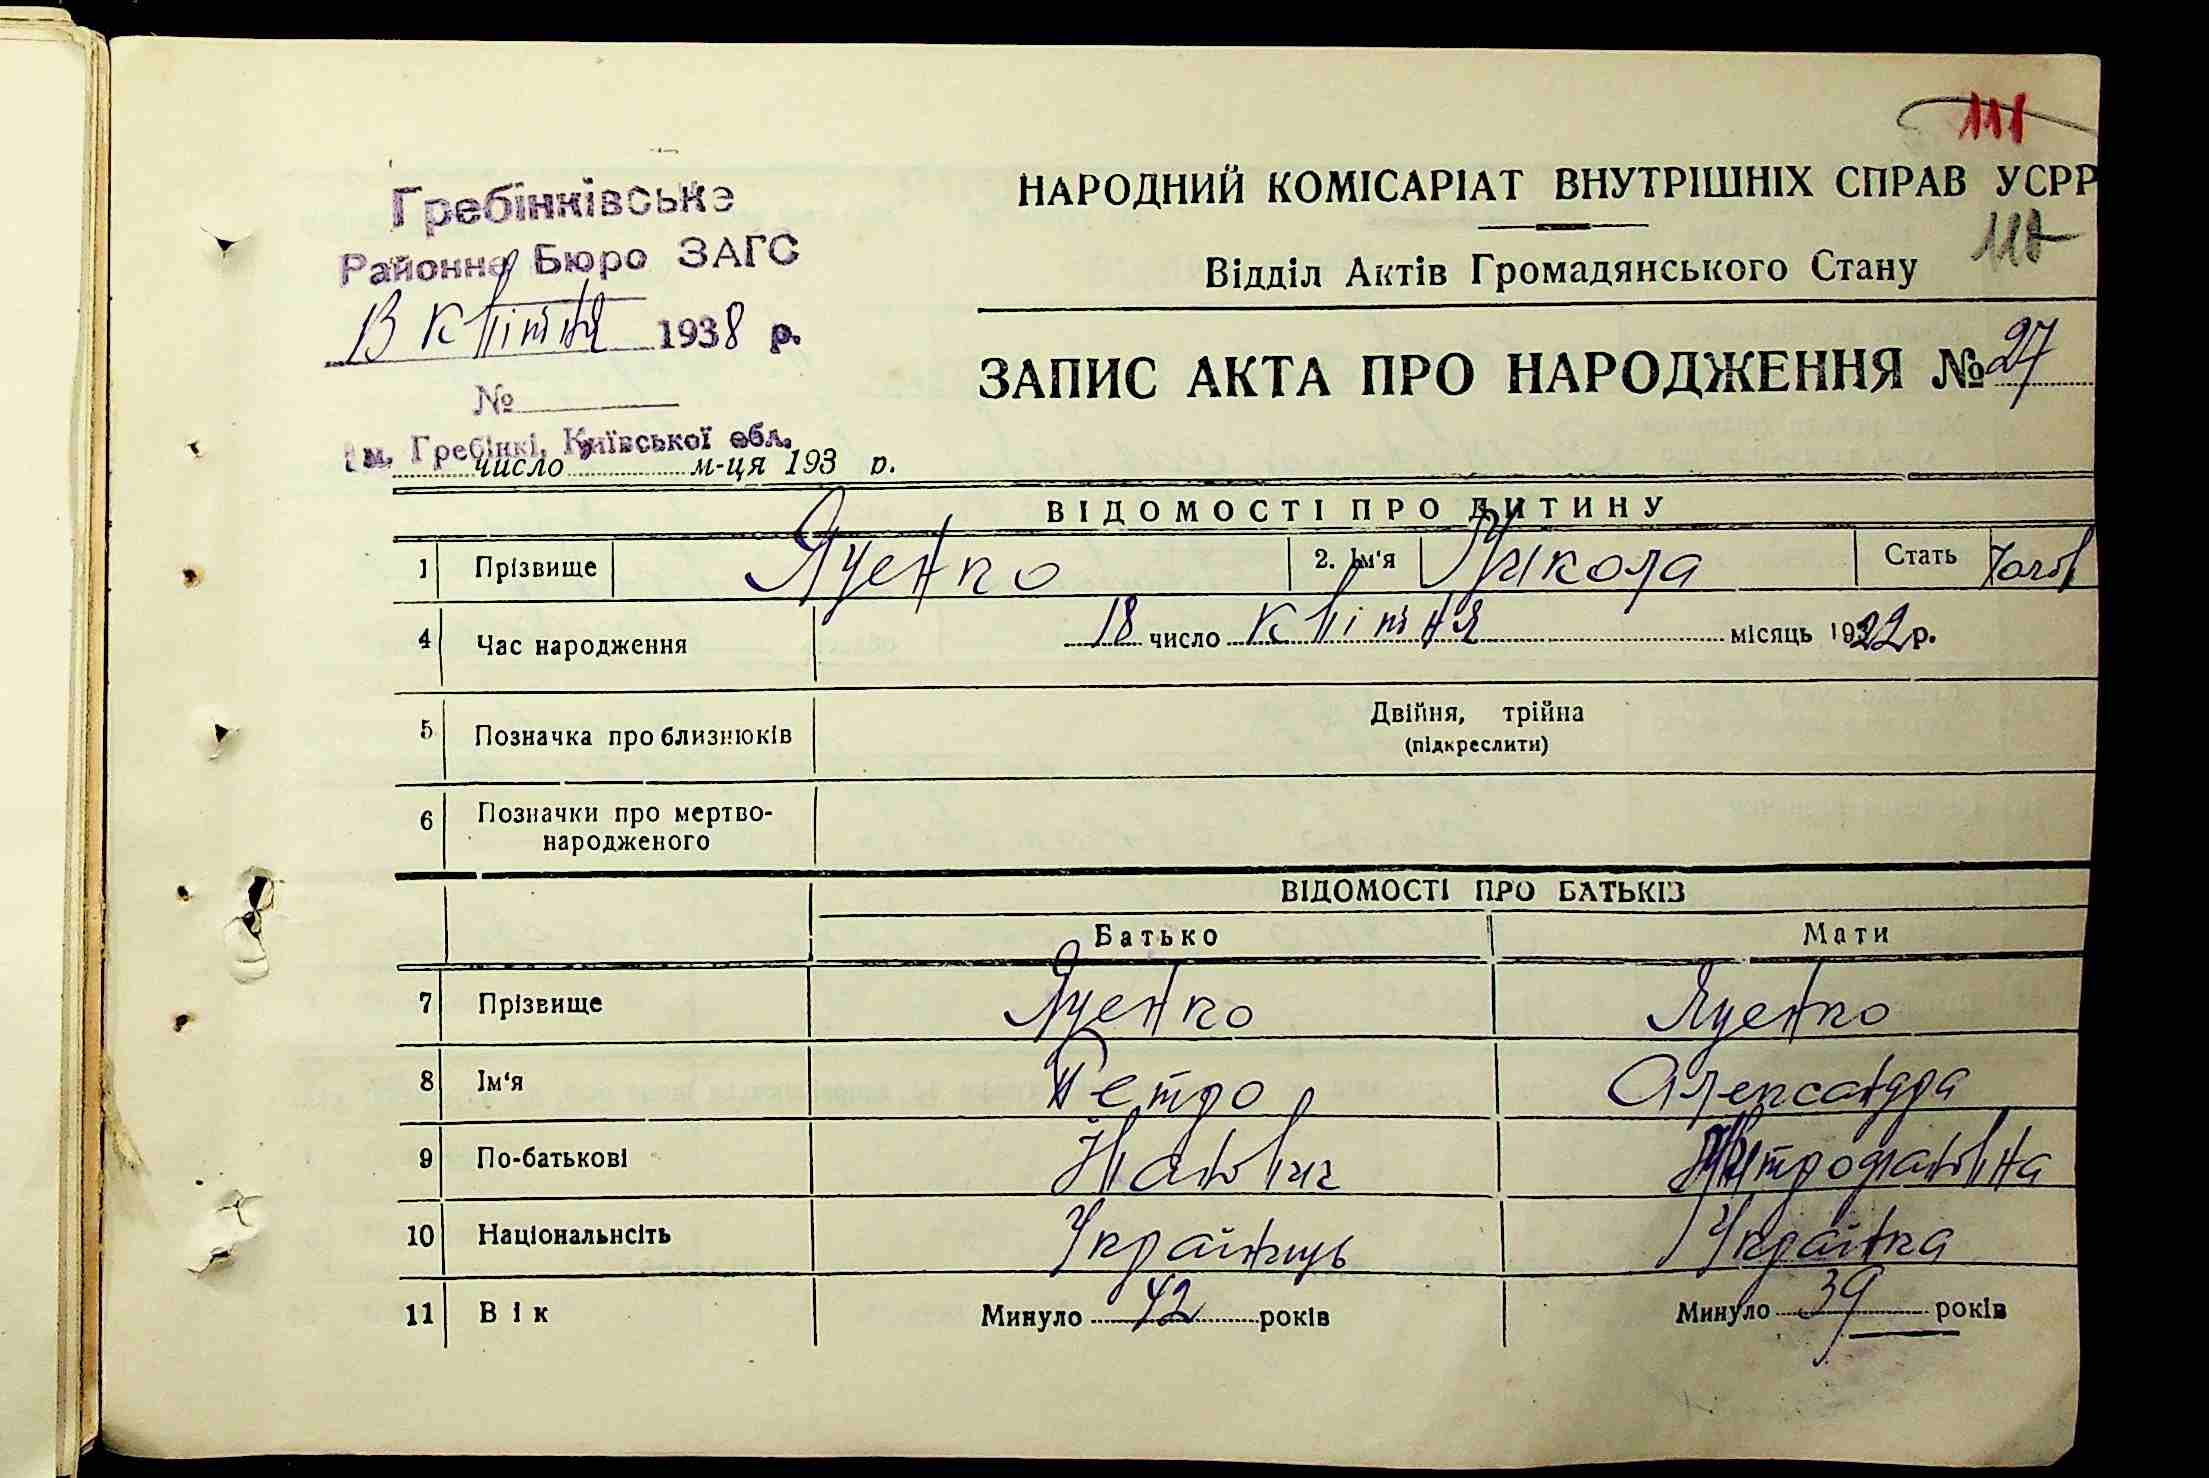 111
Гребінківське
Районне Бюро ЗАГС
13 квітня 1938 р.
№
м. Гребінкі, Київської обл.
число м-ця 193 р.
НАРОДНИЙ КОМІСАРІАТ ВНУТРІШНІХ СПРАВ УСРР
Відділ Актів Громадянського Стану
ЗАПИС АКТА ПРО НАРОДЖЕННЯ № 27
ВІДОМОСТІ ПРО ДИТИНУ
1 Прізвище Яценко 2. Ім'я Микола Стать Чолов
4 Час народження 18 число квітня місяць 1922 р.
5 Позначка про близнюків Двійня, трійна
(підкреслити)
6 Позначки про мертво-
народженого
ВІДОМОСТІ ПРО БАТЬКІВ
Батько Мати
7 Прізвище Яценко Яценко
8 Ім'я Петро Александра
9 По-батькові Йванович Митрофановна
10 Національнсіть Українець Українка
11 Вік Минуло 42 років Минуло 39 років